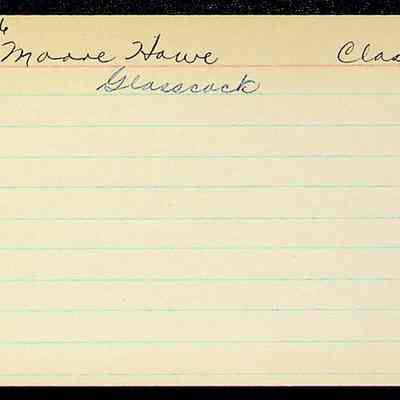 6
Moore Howe Clas
Glasscock